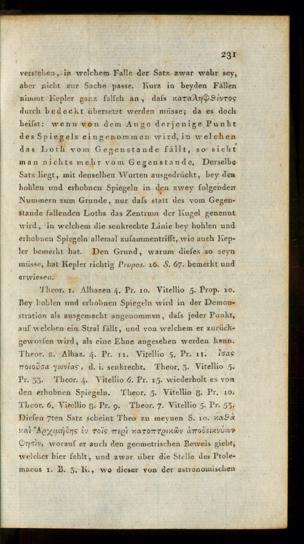 231
verstehen, in welchem Falle der Satz zwar wahr sey,
aber nicht zur Sache passe. Kurz in beyden Fällen
nimmt Kepler ganz falsch an, daſs καταληφθέντος
durch bedeckt übersetzt werden müsse; da es doch
heiſst: wenn von dem Auge derjenige Punkt
des Spiegels eingenommen wird, in welchen
das Loth vom Gegenstande fällt, so sieht
man nichts mehr vom Gegenstande. Derselbe
Satz liegt, mit denselben Worten ausgedrückt, bey den
hohlen und erhobnen Spiegeln in den zwey folgenden
Nummern zum Grunde, nur daſs statt des vom Gegen-
stande fallenden Loths das Zentrum der Kugel genennt
wird, in welchem die senkrechte Linie bey hohlen und
erhobnen Spiegeln allemal zusammentrifft, wie auch Kep-
ler bemerkt hat. Den Grund, warum dieſes so seyn
müsse, hat Kepler richtig Propos. 16. S. 67. bemerkt und
erwiesen.
Theor. 1. Alhazen 4. Pr. 10. Vitellio 5. Prop. 10.
Bey hohlen und erhobnen Spiegeln wird in der Demon-
stration als ausgemacht angenommen, daſs jeder Punkt,
auf welchen ein Stral fällt, und von welchem er zurück-
geworfen wird, als eine Ebne angesehen werden kann.
Theor. 2. Alhaz. 4. Pr. 11. Vitellio 5. Pr. 11. ἴσας
ποιοῦσα γωνίας, d. i. senkrecht. Theor. 3. Vitellio 5.
Pr. 33. Theor. 4. Vitellio 6. Pr. 15. wiederholt es von
den erhobnen Spiegeln. Theor. 5. Vitellio 8. Pr. 10.
Theor. 6. Vitellio 8. Pr. 9. Theor. 7. Vitellio 5. Pr. 53.
Diesen 7ten Satz scheint Theo zu meynen S. 10. καθὰ
καὶ Ἀρχιμήδης ἐν τοῖς περὶ κατοπτρικῶν ἀποδεικνύων
φησὶν, worauf er auch den geometrischen Beweis giebt,
welcher hier fehlt, und zwar über die Stelle des Ptole-
maeus 1. B. 3. K., wo dieser von der astronomischen